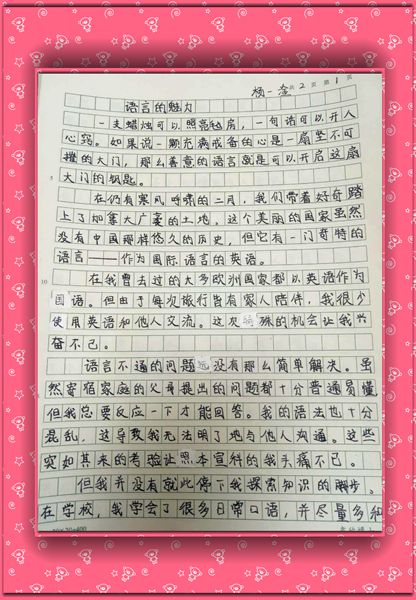 杨一 共2页 第1页
语言的魅力
一支蜡烛可以照亮毡房，一句话可以开人
心窍。如果说一颗充满戒备的心是一扇坚不可
摧的大门，那么善意的语言就是可以开启这扇
5
大门的钥匙。
在仍有寒风呼啸的二月，我们带着好奇踏
上了加拿大广袤的土地。这个美丽的国家虽然
没有中国那样悠久的历史，但它有一门奇特的
语言——作为国际语言的英语。
10
在我曾去过的大多欧洲国家都以英语作为
国语。但由于每次旅行皆有家人陪伴，我很少
使用英语和他人交流。这次特殊的机会让我兴
奋不已。
语言不通的问题远没有那么简单解决。虽
然寄宿家庭的父母提出的问题都十分普通易懂
但我总要反应一下才能回答。我的语法也十分
混乱，这导致我无法明了地与他人沟通。这些
突如其来的考验让照本宣科的我头痛不已。
但我并没有就此停下我探索知识的脚步。
在学校，我学会了很多日常口语，并尽量多和
20×20=400